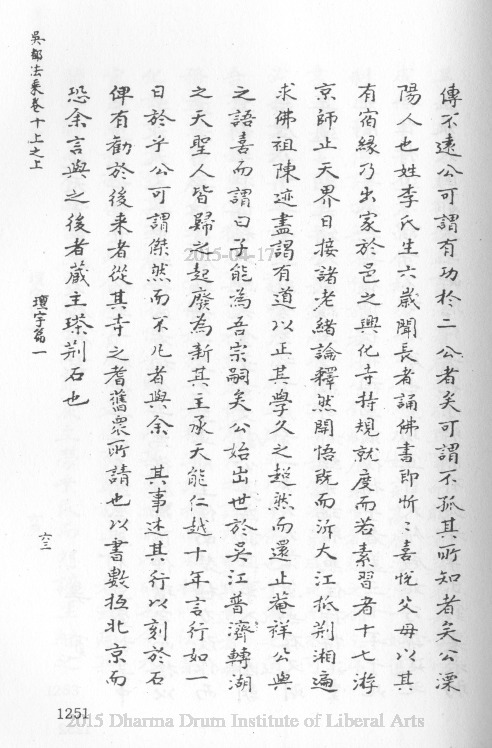 傳不遠公可謂有功於二公者矣可謂不孤其所知者矣公溧
陽人也姓李氏生六歲聞長者誦佛書即忻〻喜悅父母以其
有宿緣乃出家於邑之興化寺持規就度而若素習者十七游
京師止天界日接諸老緒論釋然開悟既而泝大江抵荊湘遍
求佛祖陳迹盡謁有道以正其學久之超然而還止菴祥公與
之語喜而謂曰子能為吾宗嗣矣公始出世於吳江普濟轉湖
之天聖人皆歸之起廢為新其主承天能仁越十年言行如一
日於乎公可謂傑然而不凡者與余 其事述其行以刻於石
俾有勸於後来者從其寺之耆舊衆所請也以書數抵北京而
恐余言與之後者蔵主琭荊石也
吳都法乗卷十上之上
壞字篇一
六三
1251
2015-04-17
2015 Dharma Drum Institute of Liberal Arts